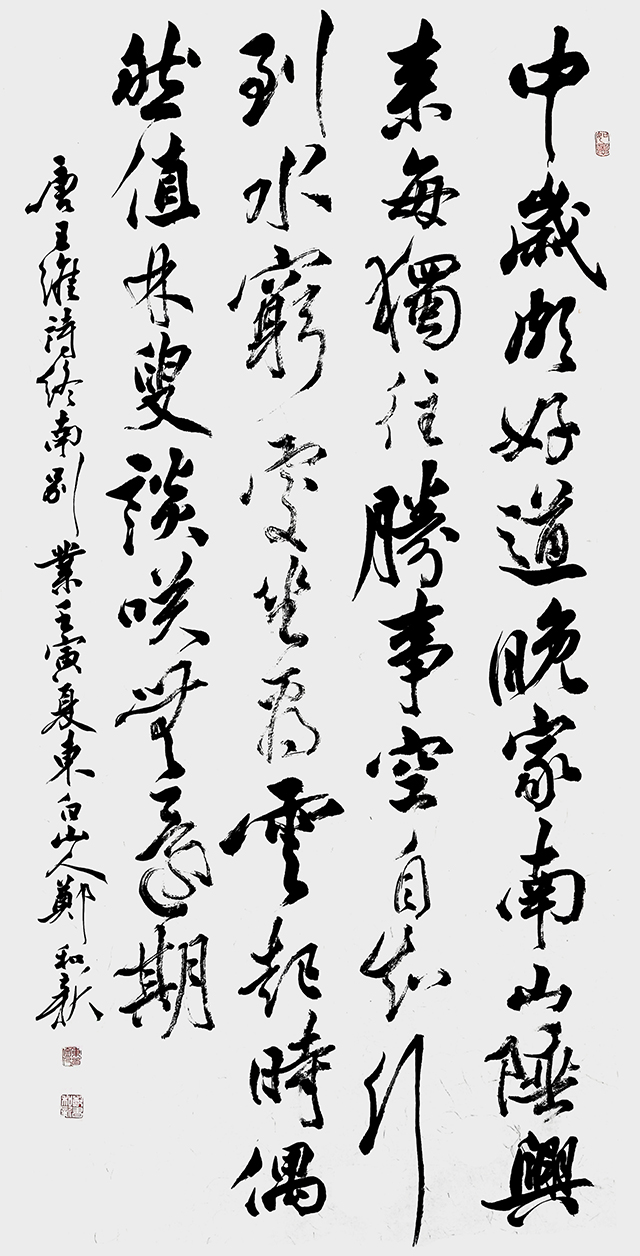 中歲頗好道晚家南山陲興
來每獨往勝事空自知行
到水窮處坐看雲起時偶
然值林叟談咲無還期
唐王維詩終南別業壬寅夏東白山人鄭和新